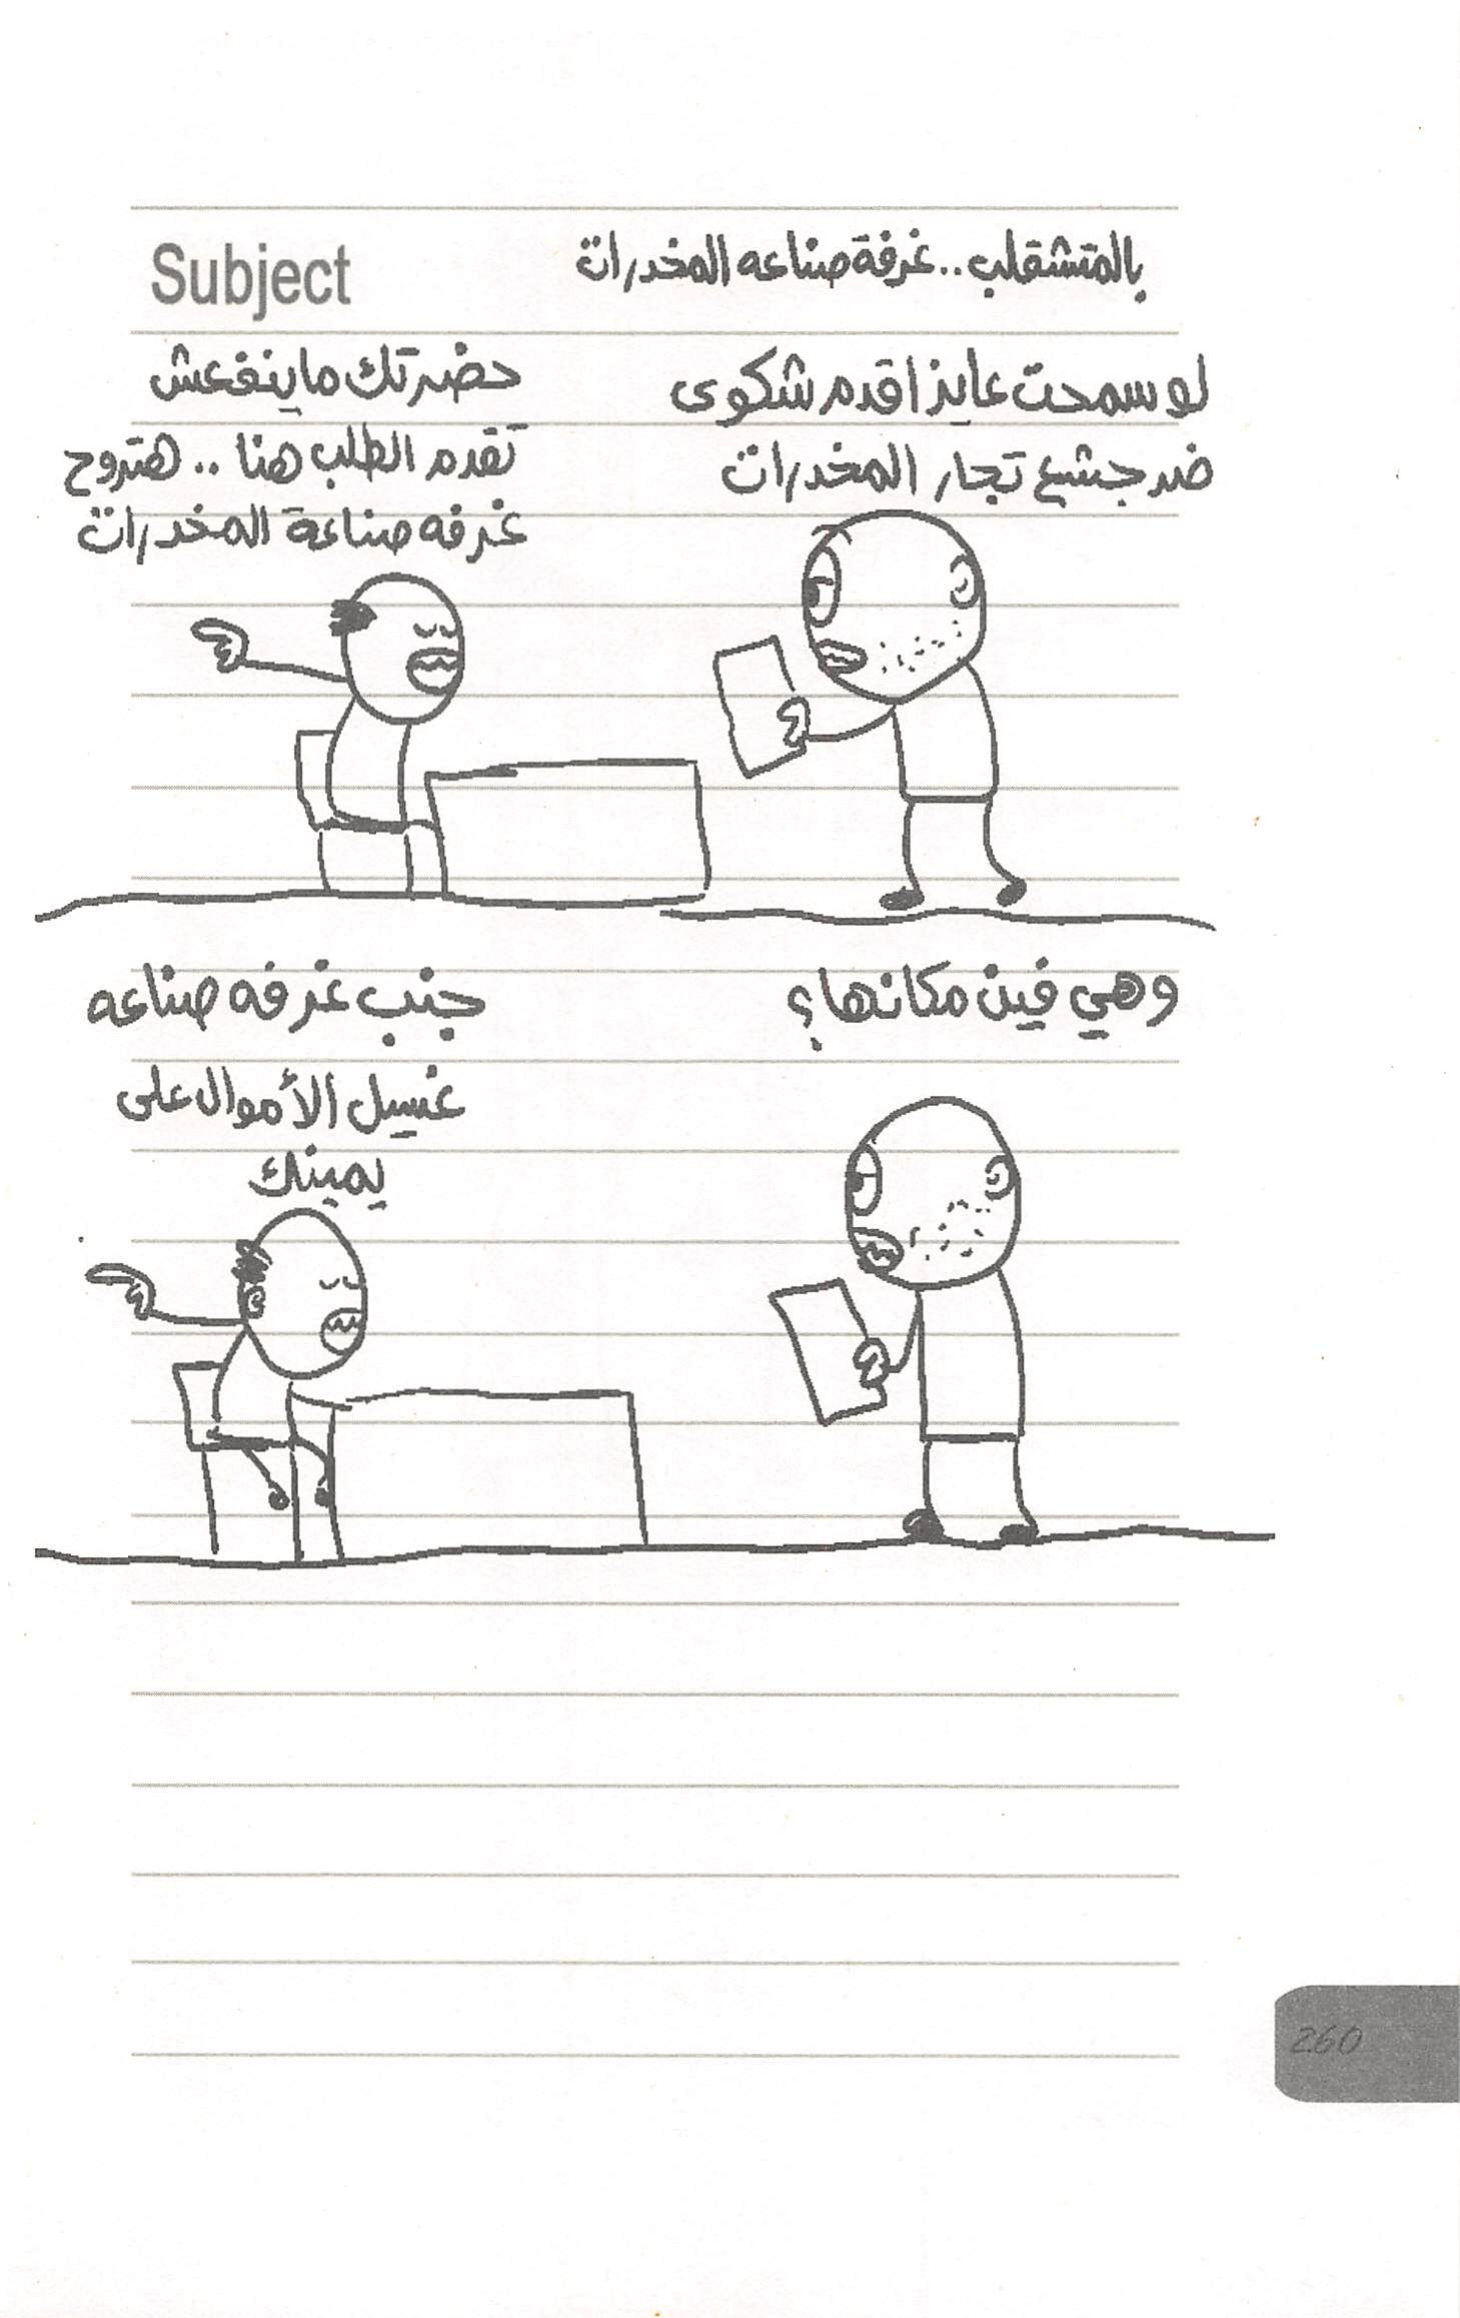 Subject
بالمتشقلب.. غرفة صناعه المخدرات
لو سمحت عايز اقدم شكوى
ضد جشع تجار المخدرات
حضرتك ماينفعش
تقدم الطلب هنا .. هتروح
غرفه صناعة المخدرات
وهي فين مكانها؟
جنب غرفه صناعه
غسيل الأموال على
يمينك
260